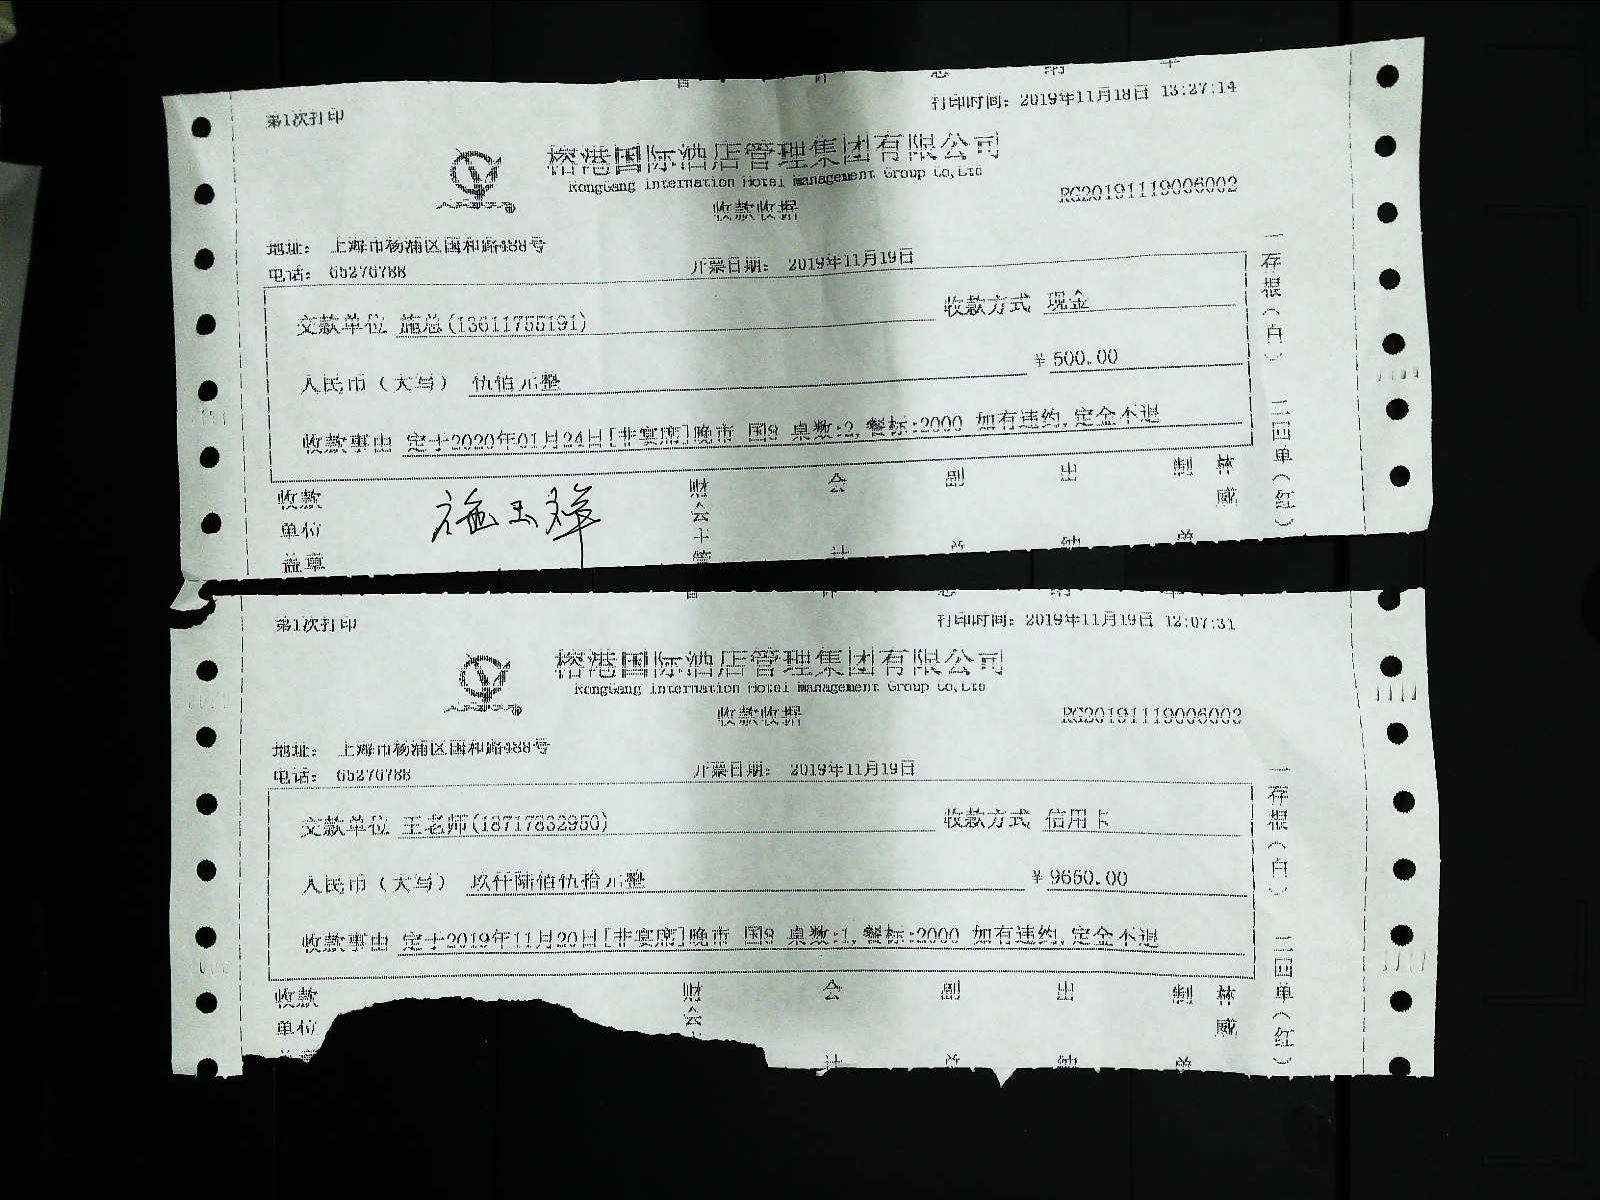 第1次打印
打印时间：2019年11月18日 13:27:14
榕港国际酒店管理集团有限公司
RongGang International Hotel Management Group Co,Ltd
收款收据
RG20191119006002
地址： 上海市杨浦区国和路488号
电话： 65276788
开票日期： 2019年11月19日
交款单位 施总(13611755191)
收款方式 现金
人民币（大写） 伍佰元整
￥500.00
收款事由 定于2020年01月24日[非宴席]晚市 国8 桌数:2,餐标:2000 如有违约,定金不退
收款单位盖章
施玉
财会主管
会计
副总
出纳
制单
林威
一存根（白） 二回单（红）
第1次打印
打印时间：2019年11月19日 12:07:31
榕港国际酒店管理集团有限公司
RongGang International Hotel Management Group Co,Ltd
收款收据
RG20191119006003
地址： 上海市杨浦区国和路488号
电话： 65276788
开票日期： 2019年11月19日
交款单位 王老师(18717832950)
收款方式 信用卡
人民币（大写） 玖仟陆佰伍拾元整
￥9650.00
收款事由 定于2019年11月20日[非宴席]晚市 国8 桌数:1,餐标:2000 如有违约,定金不退
收款单位
财会
会计
副总
出纳
制单
林威
一存根（白） 二回单（红）